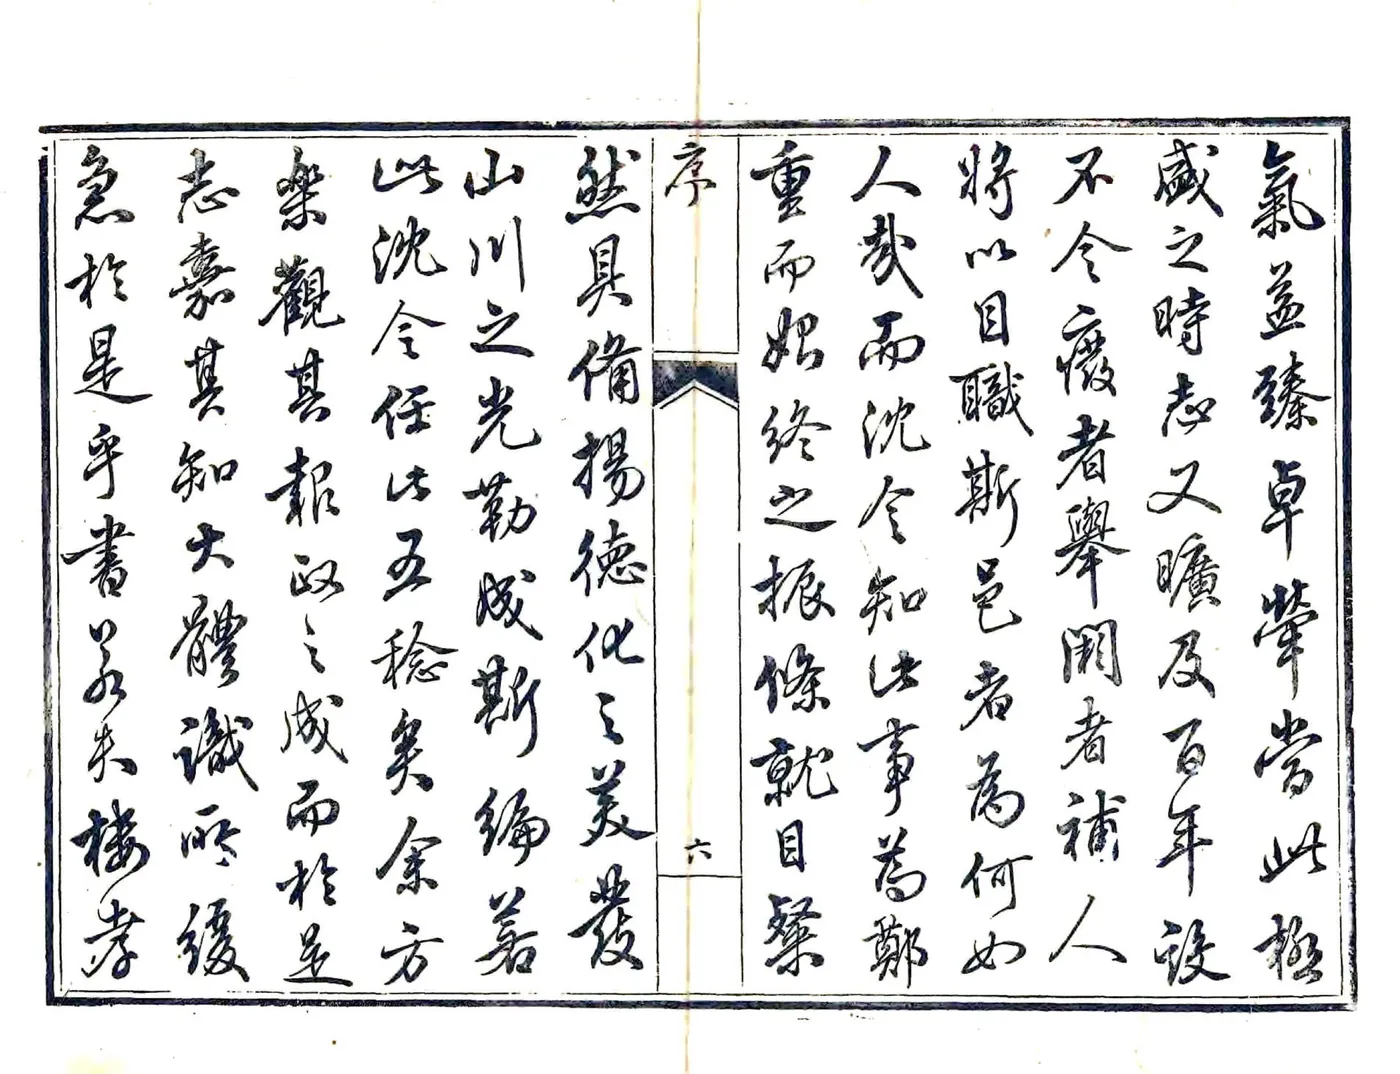 氣益臻卓犖當此極
盛之時志又曠及百年設
不令廢者舉闕者補人
將以目職斯邑者為何如
人哉而沈令知此事為鄭
重而始終之振條就目粲
序
六
然具備揚德化之美發
山川之光勒成斯編若
此沈令任此五稔矣余方
樂觀其報政之成而於是
志嘉其知大體識所緩
急於是乎書若夫樓孝